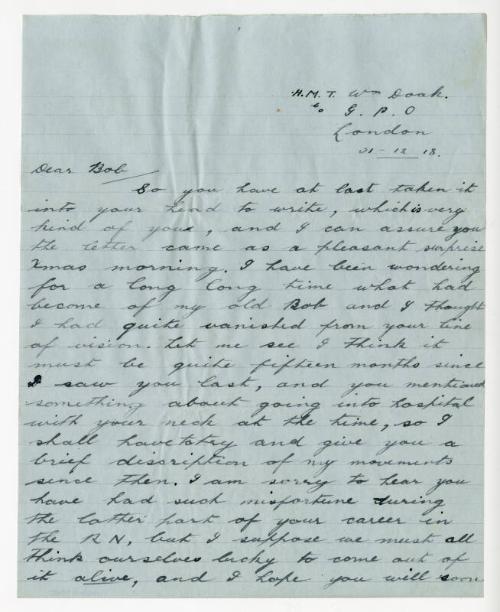 H.M.T. Wm Doak.
c/o G. P. O
London
31-12 18.
Dear Bob
So you have at last taken it
into your head to write, which is very
kind of you, and I can assure you
the letter came as a pleasant surprise
Xmas morning. I have been wondering
for a long long time what had
become of my old Bob and I thought
I had quite vanished from your line
of vision. Let me see I think it
must be quite fifteen months since
I saw you last, and you mentioned
something about going into hospital
with your neck at the time, so I
shall have to try and give you a
brief discription of my movements
since then. I am sorry to hear you
have had such misfortune during
the latter part of your career in
the R N, but I suppose we must all
think ourselves lucky to come out of
it alive, and I hope you will soon